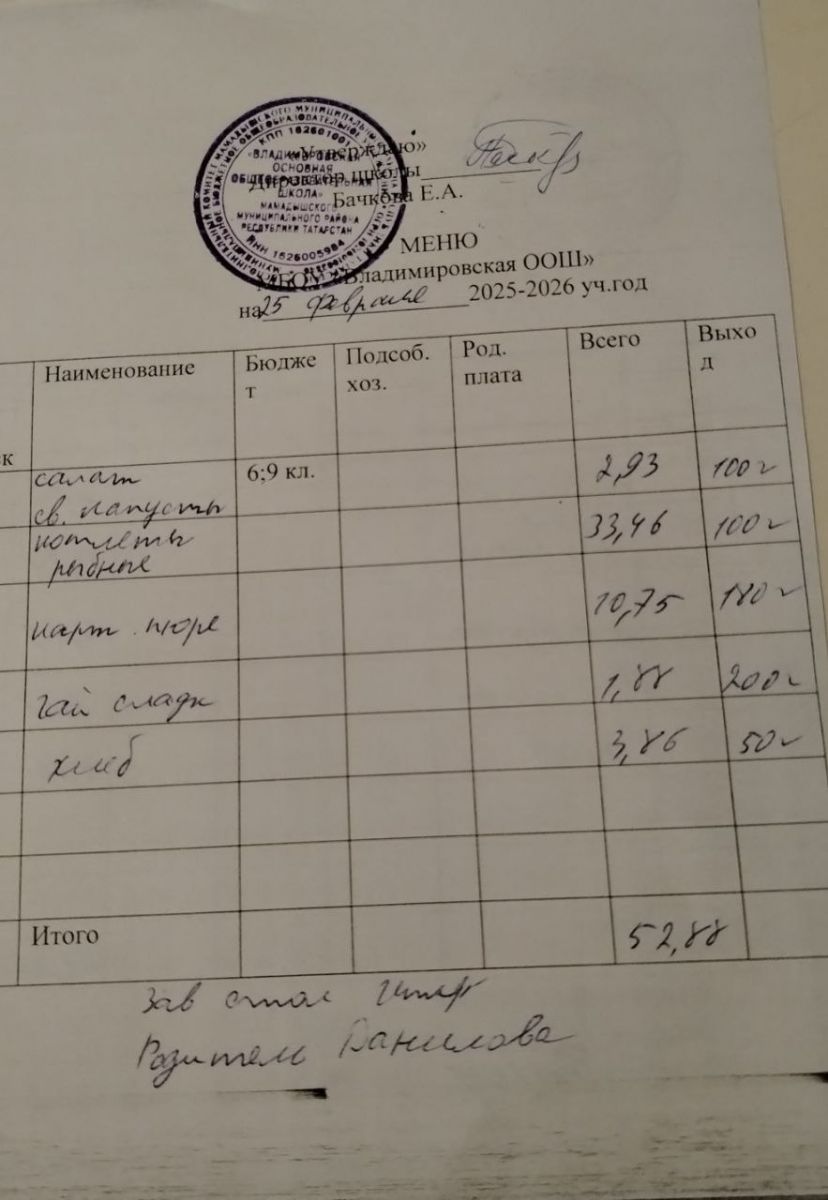 «Утверждаю»
Директор школы
Бачкова Е.А.
КПП 162601001
«ВЛАДИМИРОВСКАЯ
ОСНОВНАЯ
ОБЩЕОБРАЗОВАТЕЛЬНАЯ
ШКОЛА»
МАМАДЫШСКОГО
МУНИЦИПАЛЬНОГО РАЙОНА
РЕСПУБЛИКИ ТАТАРСТАН
ИНН 1626005984
МЕНЮ
МБОУ «Владимировская ООШ»
на 25 февраля 2025-2026 уч.год
Наименование Бюдже Подсоб. Род. Всего Выхо
т хоз. плата д
к
салат 6;9 кл. 2,93 100 г
св. капусты
котлеты 33,46 100 г
рыбные
карт. пюре 10,75 180 г
чай сладк 1,88 200 г
хлеб 3,86 50 г
Итого 52,88
Зав стол
Родитель Данилова